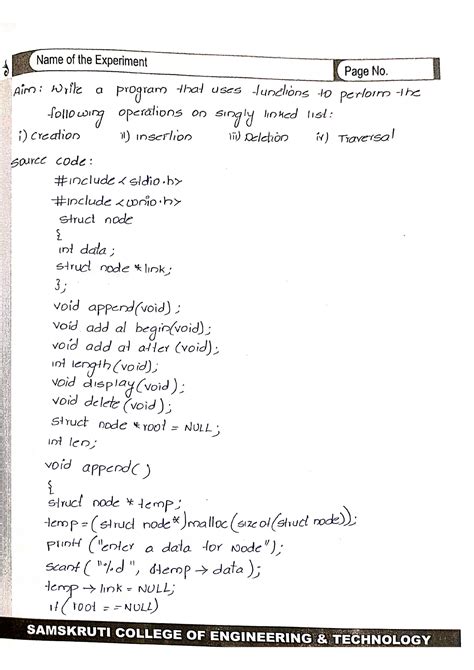 Name of the Experiment
Page No.
Aim: Write a program that uses functions to perform the
following operations on singly linked list:
i) Creation ii) insertion iii) Deletion iv) Traversal
source code:
#include < stdio.h>
#include <conio.h>
struct node
{
int data;
struct node * link;
};
void append(void);
void add at begin(void);
void add at after (void);
int length (void);
void display (void);
void delete (void);
struct node * root = NULL;
int len;
void append()
{
struct node * temp;
temp = (struct node*)malloc(size of(struct node));
printf ("enter a data for Node");
scanf ( "%d ", &temp → data );
temp → link = NULL;
if ( root = = NULL)
SAMSKRUTI COLLEGE OF ENGINEERING & TECHNOLOGY